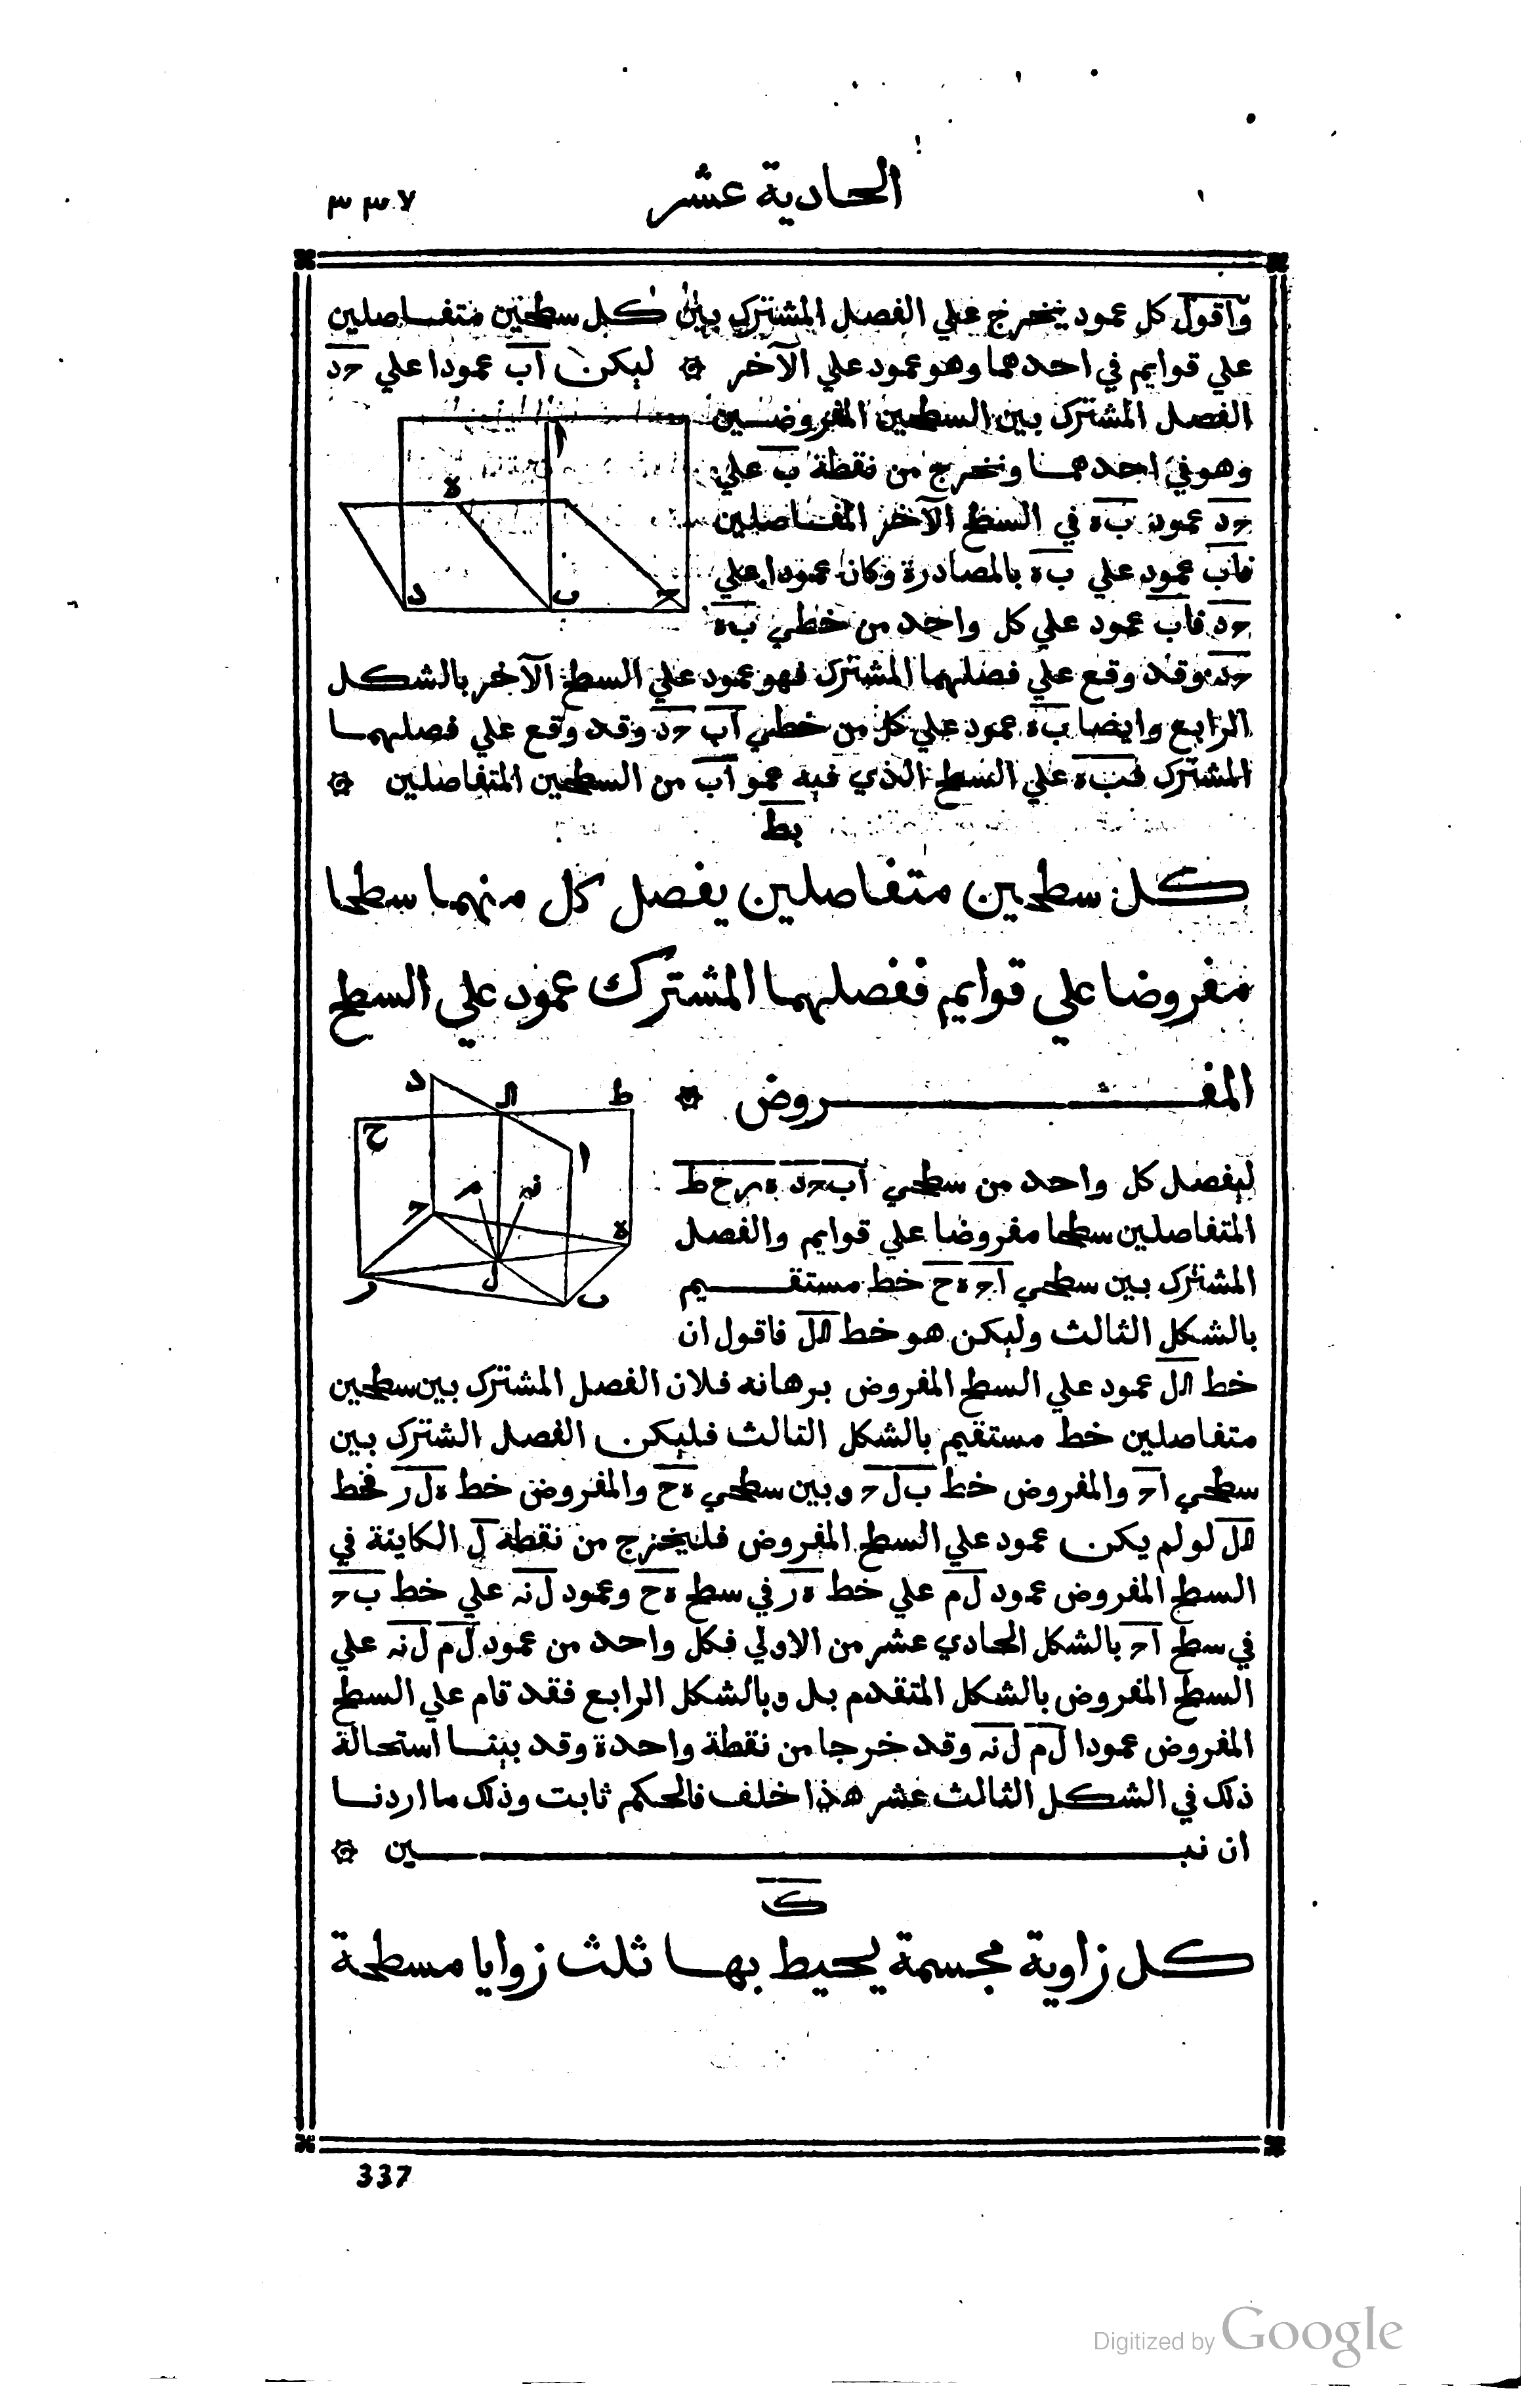 الحادية عشر
٣٣٧
واقول كل عمود يخرج علي الفصل المشترك بين كل سطحين متفاصلين
علي قوايم في احدهما وهو عمود علي الآخر ۞ ليكن اب عمودا علي حد
الفصل المشترك بين السطحين المفروضين
وهو في احدهما ونخرج من نقطة ب علي
حد عمود به في السطح الآخر المفاصلين
فاب عمود علي به بالمصادرة وكان عمودا علي
حد فاب عمود علي كل واحد من خطي به
حد وقد وقع علي فصلهما المشترك فهو عمود علي السطح الآخر بالشكل
الرابع وايضا به عمود علي كل من خطي اب حد وقد وقع علي فصلهما
المشترك فبه علي السطح الذي فيه عمو اب من السطحين المتفاصلين ۞
ا
ه
د
ب
ح
يط
كل سطحين متفاصلين يفصل كل منهما سطحا
مفروضا علي قوايم ففصلهما المشترك عمود علي السطح
المفــروض ۞
د
ك
ط
ح
ا
م
نه
ح
ه
ر
ل
ب
ليفصل كل واحد من سطحي ابحد هرحط
المتفاصلين سطحا مفروضا علي قوايم والفصل
المشترك بين سطحي اح هح خط مستقيم
بالشكل الثالث وليكن هو خط كل فاقول ان
خط كل عمود علي السطح المفروض برهانه فلان الفصل المشترك بين سطحين
متفاصلين خط مستقيم بالشكل الثالث فليكن الفصل الشترك بين
سطحي اح والمفروض خط بلح وبين سطحي هح والمفروض خط هلر فخط
كل لو لم يكن عمود علي السطح المفروض فليخرج من نقطة ل الكاينة في
السطح المفروض عمود لم علي خط هر في سطح هح وعمود لنه علي خط بح
في سطح اح بالشكل الحادي عشر من الاولي فكل واحد من عمود لم لنه علي
السطح المفروض بالشكل المتقدم بل وبالشكل الرابع فقد قام علي السطح
المفروض عمودا لم لنه وقد خرجا من نقطة واحدة وقد بينا استحالة
ذلك في الشكل الثالث عشر هذا خلف فالحكم ثابت وذلك ما اردنا
ان نبــين ۞
ك
كل زاوية مجسمة يحيط بها ثلث زوايا مسطحة
337
Digitized by Google